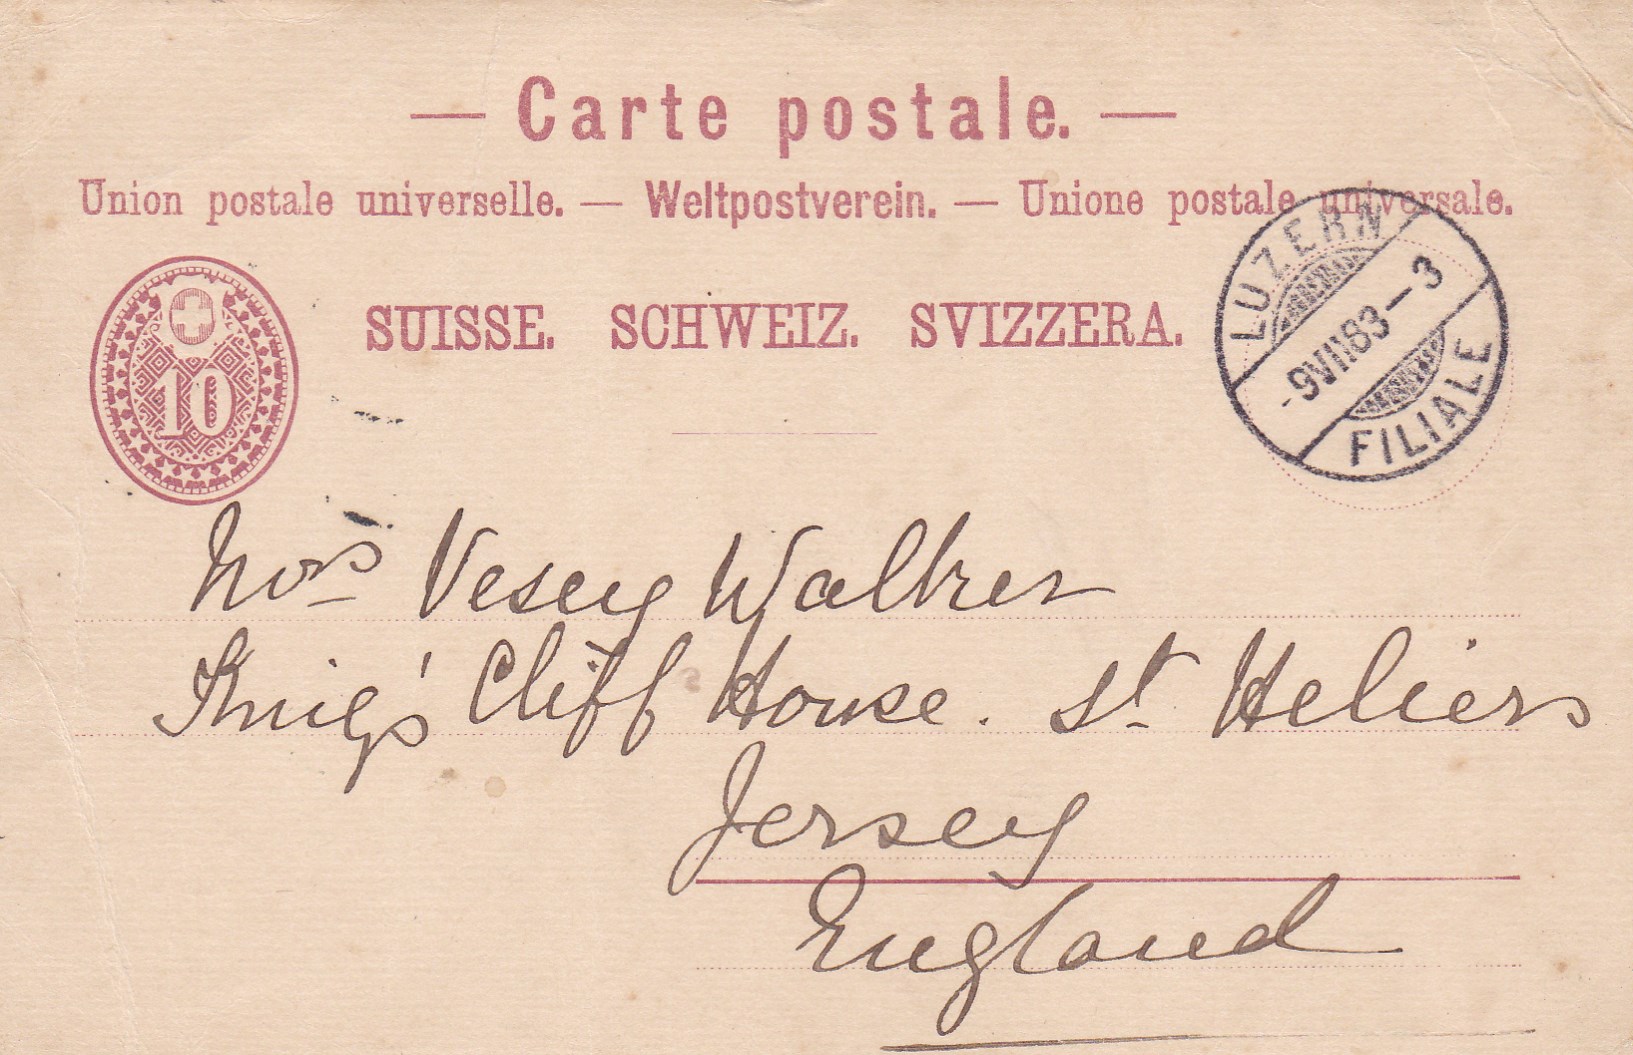 — Carte postale. —
Union postale universelle. — Weltpostverein. — Unione postale universale.
SUISSE. SCHWEIZ. SVIZZERA.
10
LUZERN
-9VII83-3
FILIALE
Mrs Vesey Walker
King's Cliff House. St Heliers
Jersey
England